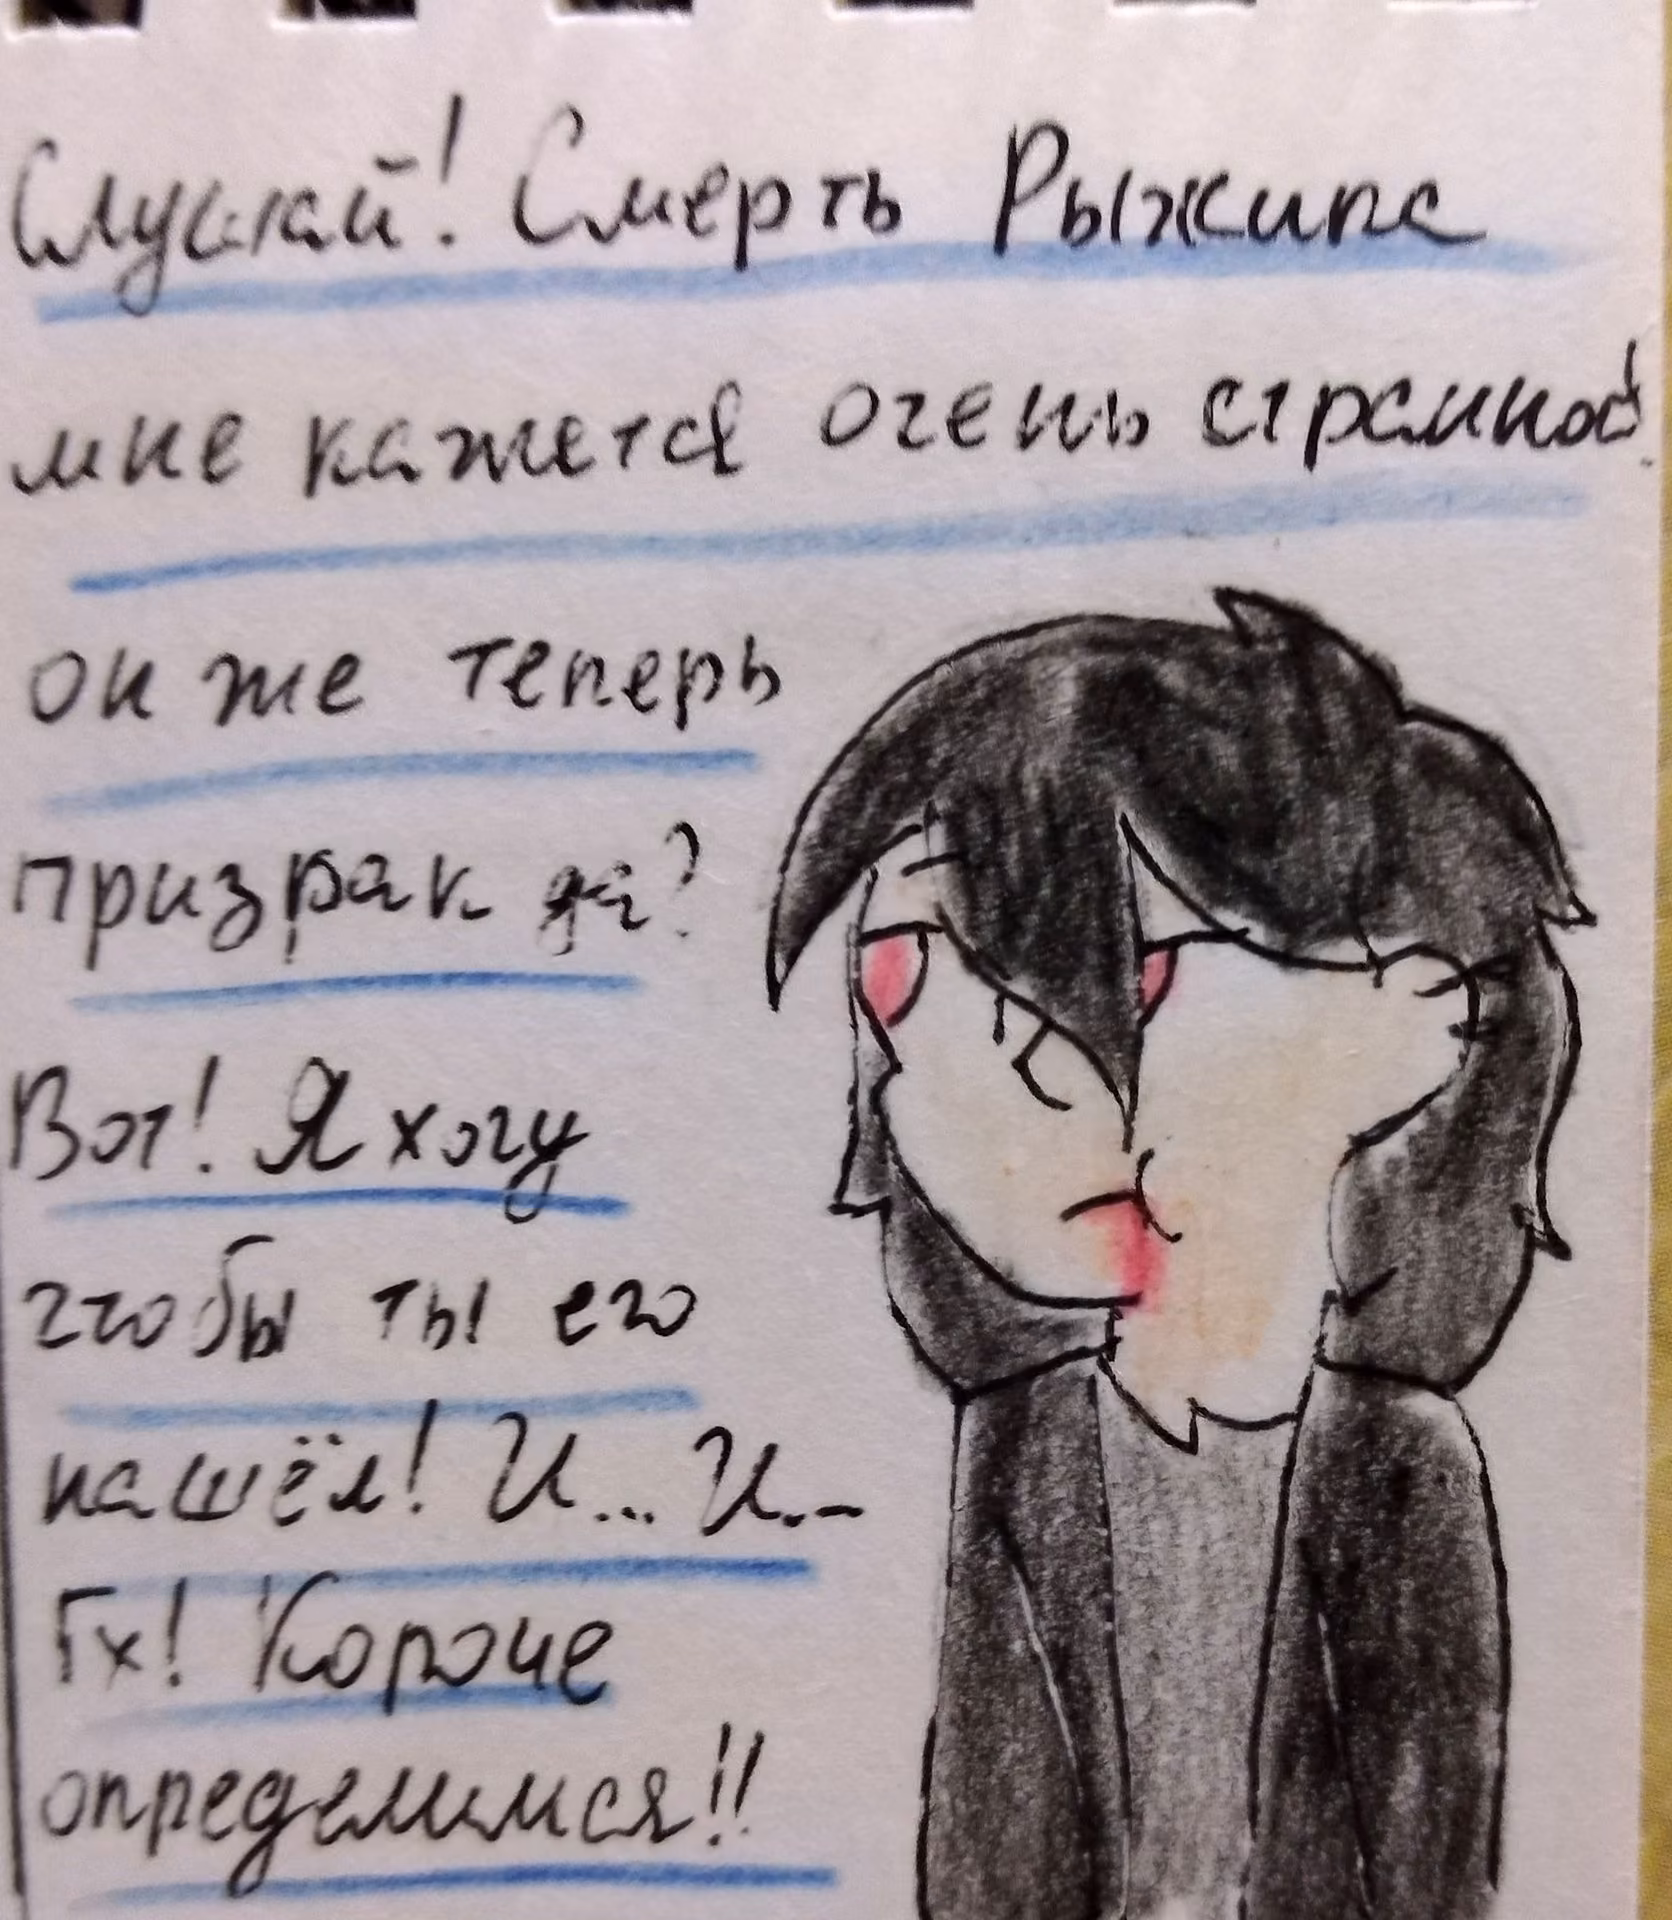 Слушай! Смерть Рыжика
мне кажется очень странной!
он же теперь
призрак да?
Вот! Я хочу
чтобы ты его
нашёл! И... И...
Гх! Короче
определимся!!